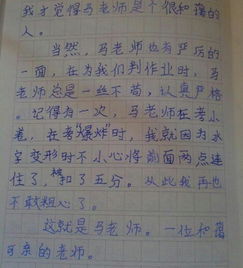 我才觉得马老师是个很和蔼的
人。
当然,马老师也有严厉的
一面,在为我们判作业时,马
老师总是一丝不苟,认真严格
。记得有一次,马老师在考小
卷,在考爆炸时,我就因为火
字变形时不小心将前面两点连
住了,被扣了五分。从此我再也
不敢粗心了。
这就是马老师。一位和蔼
可亲的老师。